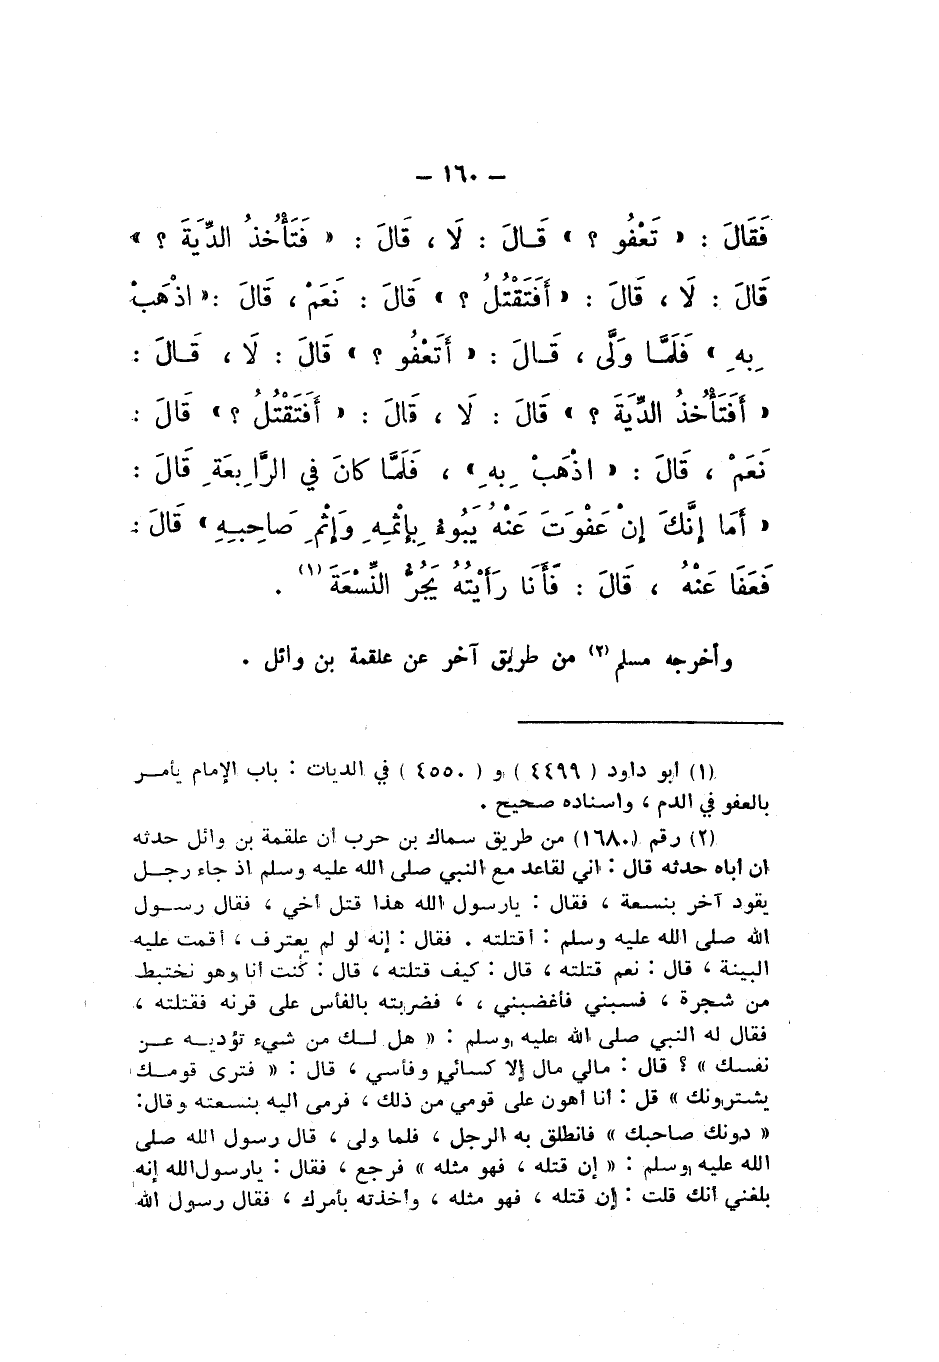 – ١٦٠ –
فَقَالَ : « تَعْفُو ؟ » قَـالَ : لَا ، قَالَ : « فَتَأْخُذُ الدِّيَةَ ؟ »
قَالَ : لَا ، قَالَ : « أَفَتَقْتُلُ ؟ » قَالَ : نَعَمْ ، قَالَ :« اذْهَبْ
بِهِ » فَلَمَّـا وَلَّى ، قَـالَ : « أَتَعْفُو ؟ » قَالَ : لَا ، قَـالَ :
« أَفَتَأْخُذُ الدِّيَةَ ؟ » قَالَ : لَا ، قَالَ : « أَفَتَقْتُلُ ؟ » قَالَ :
نَعَمْ ، قَالَ : « اذْهَبْ بِهِ » ، فَلَمَّا كَانَ فِي الرَّابِعَةِ قَالَ :
« أَمَا إِنَّكَ إِنْ عَفَوْتَ عَنْهُ يَبُوءُ بِإِثْمِـهِ وَإِثْمِ صَاحِبِـهِ » قَالَ :
فَعَفَا عَنْهُ ، قَالَ : فَأَنَا رَأَيْتُهُ يَجُرُّ النِّسْعَةَ (١) .
وأخرجه مسلم (٢) من طريق آخر عن علقمة بن وائل .
(١) أبو داود ( ٤٤٩٩ ) و ( ٤٥٥٠ ) في الديات : باب الإمام يأمـر
بالعفو في الدم ، واسناده صحيح .
(٢) رقم (١٦٨٠) من طريق سماك بن حرب أن علقمة بن وائل حدثه
ان أباه حدثه قال : اني لقاعد مع النبي صلى الله عليه وسلم اذ جاء رجـل
يقود آخر بنسعة ، فقال : يارسول الله هذا قتل أخي ، فقال رسـول
الله صلى الله عليه وسلم : أقتلته . فقال : إنه لو لم يعترف ، أقمت عليه
البينة ، قال : نعم قتلته ، قال : كيف قتلته ، قال : كنت أنا وهو نختبط
من شجرة ، فسبني فأغضبني ، ، فضربته بالفأس على قرنه فقتلته ،
فقال له النبي صلى الله عليه وسلم : « هل لـك من شيء تؤديـه عـن
نفسـك » ؟ قال : مالي مال إلا كسائي وفأسي ، قال : « فترى قومـك
يشترونك » قل : أنا أهون على قومي من ذلك ، فرمى اليه بنسعته وقال:
« دونك صاحبك » فانطلق به الرجل ، فلما ولى ، قال رسول الله صلى
الله عليه وسلم : « إن قتله ، فهو مثله » فرجع ، فقال : يارسول الله إنه
بلغني أنك قلت : إن قتله ، فهو مثله ، وأخذته بأمرك ، فقال رسول الله